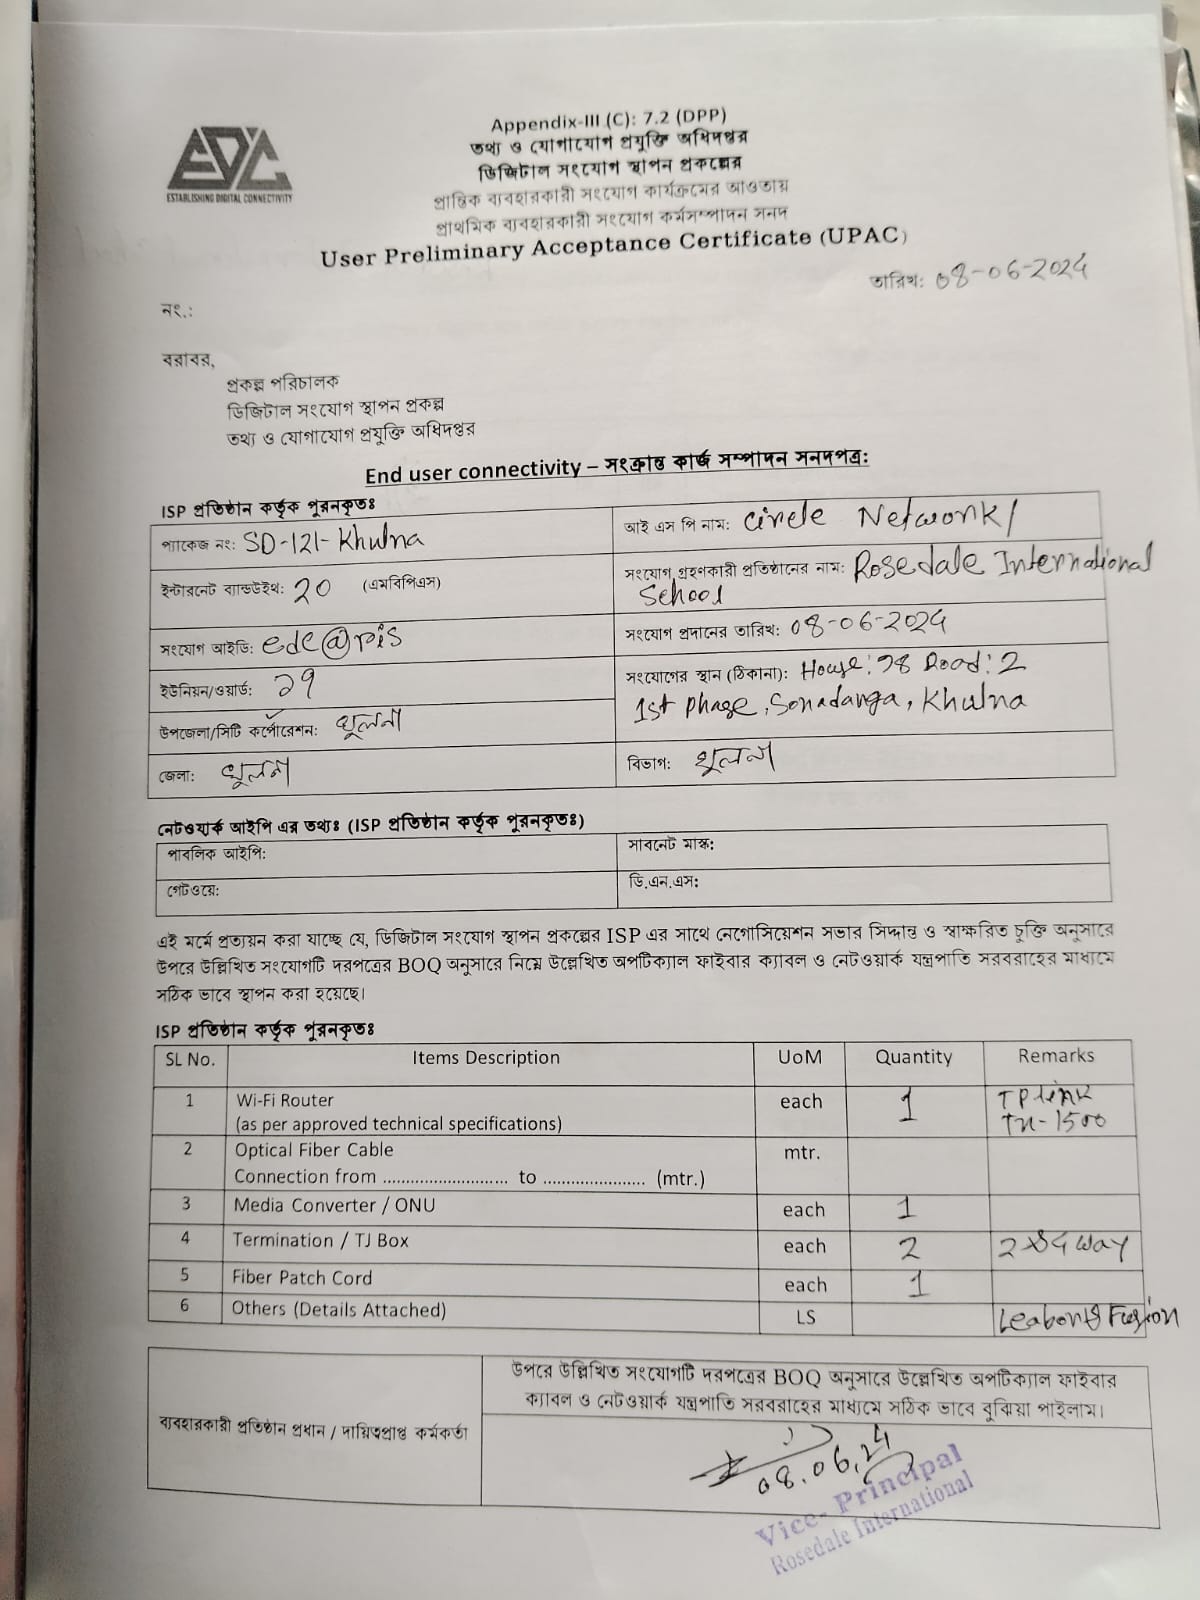 EDC
ESTABLISHING DIGITAL CONNECTIVITY
Appendix-III (C): 7.2 (DPP)
তথ্য ও যোগাযোগ প্রযুক্তি অধিদপ্তর
ডিজিটাল সংযোগ স্থাপন প্রকল্পের
প্রান্তিক ব্যবহারকারী সংযোগ কার্যক্রমের আওতায়
প্রাথমিক ব্যবহারকারী সংযোগ কর্মসম্পাদন সনদ
User Preliminary Acceptance Certificate (UPAC)
তারিখ: 08-06-2024
নং:
বরাবর,
প্রকল্প পরিচালক
ডিজিটাল সংযোগ স্থাপন প্রকল্প
তথ্য ও যোগাযোগ প্রযুক্তি অধিদপ্তর
End user connectivity – সংক্রান্ত কার্জ সম্পাদন সনদপত্র:
ISP প্রতিষ্ঠান কর্তৃক পূরনকৃতঃ
প্যাকেজ নং: SD-121-Khulna
আই এস পি নাম: Circle Network
ইন্টারনেট ব্যান্ডউইথ: 20 (এমবিপিএস)
সংযোগ গ্রহণকারী প্রতিষ্ঠানের নাম: Rosedale International
School
সংযোগ আইডি: edc@ris
সংযোগ প্রদানের তারিখ: 08-06-2024
ইউনিয়ন/ওয়ার্ড:
সংযোগের স্থান (ঠিকানা): House: Road: 2
1st Phase, Sonadanga, Khulna
উপজেলা/সিটি কর্পোরেশন: খুলনা
জেলা: খুলনা
বিভাগ: খুলনা
নেটওয়ার্ক আইপি এর তথ্যঃ (ISP প্রতিষ্ঠান কর্তৃক পূরনকৃতঃ)
পাবলিক আইপি:
সাবনেট মাস্ক:
গেটওয়ে:
ডি.এন.এস:
এই মর্মে প্রত্যয়ন করা যাচ্ছে যে, ডিজিটাল সংযোগ স্থাপন প্রকল্পের ISP এর সাথে নেগোসিয়েশন সভার সিদ্দান্ত ও স্বাক্ষরিত চুক্তি অনুসারে
উপরে উল্লিখিত সংযোগটি দরপত্রের BOQ অনুসারে নিম্নে উল্লেখিত অপটিক্যাল ফাইবার ক্যাবল ও নেটওয়ার্ক যন্ত্রপাতি সরবরাহের মাধ্যমে
সঠিক ভাবে স্থাপন করা হয়েছে।
ISP প্রতিষ্ঠান কর্তৃক পূরনকৃতঃ
SL No. Items Description UoM Quantity Remarks
1 Wi-Fi Router each 1 TP Link
(as per approved technical specifications)
2 Optical Fiber Cable mtr.
Connection from ............................ to ...................... (mtr.)
3 Media Converter / ONU each 1
4 Termination / TJ Box each 2 way
5 Fiber Patch Cord each 1
6 Others (Details Attached) LS Fusion
উপরে উল্লিখিত সংযোগটি দরপত্রের BOQ অনুসারে উল্লেখিত অপটিক্যাল ফাইবার
ক্যাবল ও নেটওয়ার্ক যন্ত্রপাতি সরবরাহের মাধ্যমে সঠিক ভাবে বুঝিয়া পাইলাম।
ব্যবহারকারী প্রতিষ্ঠান প্রধান / দায়িত্বপ্রাপ্ত কর্মকর্তা
08.06.24
Vice- Principal
Rosedale International